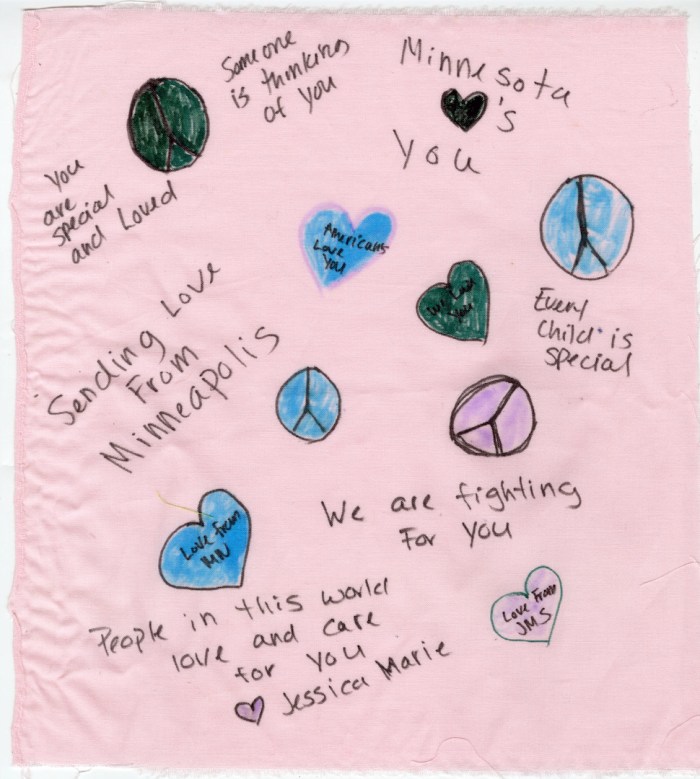 Someone
is thinking
of you
Minnesota
's
you
You
are
special
and Loved
Americans
Love
You
We Love
You
Every
Child is
Special
Sending Love
From
Minneapolis
We are fighting
For you
Love from
MN
Love From
JMS
People in this world
love and care
for you
Jessica Marie